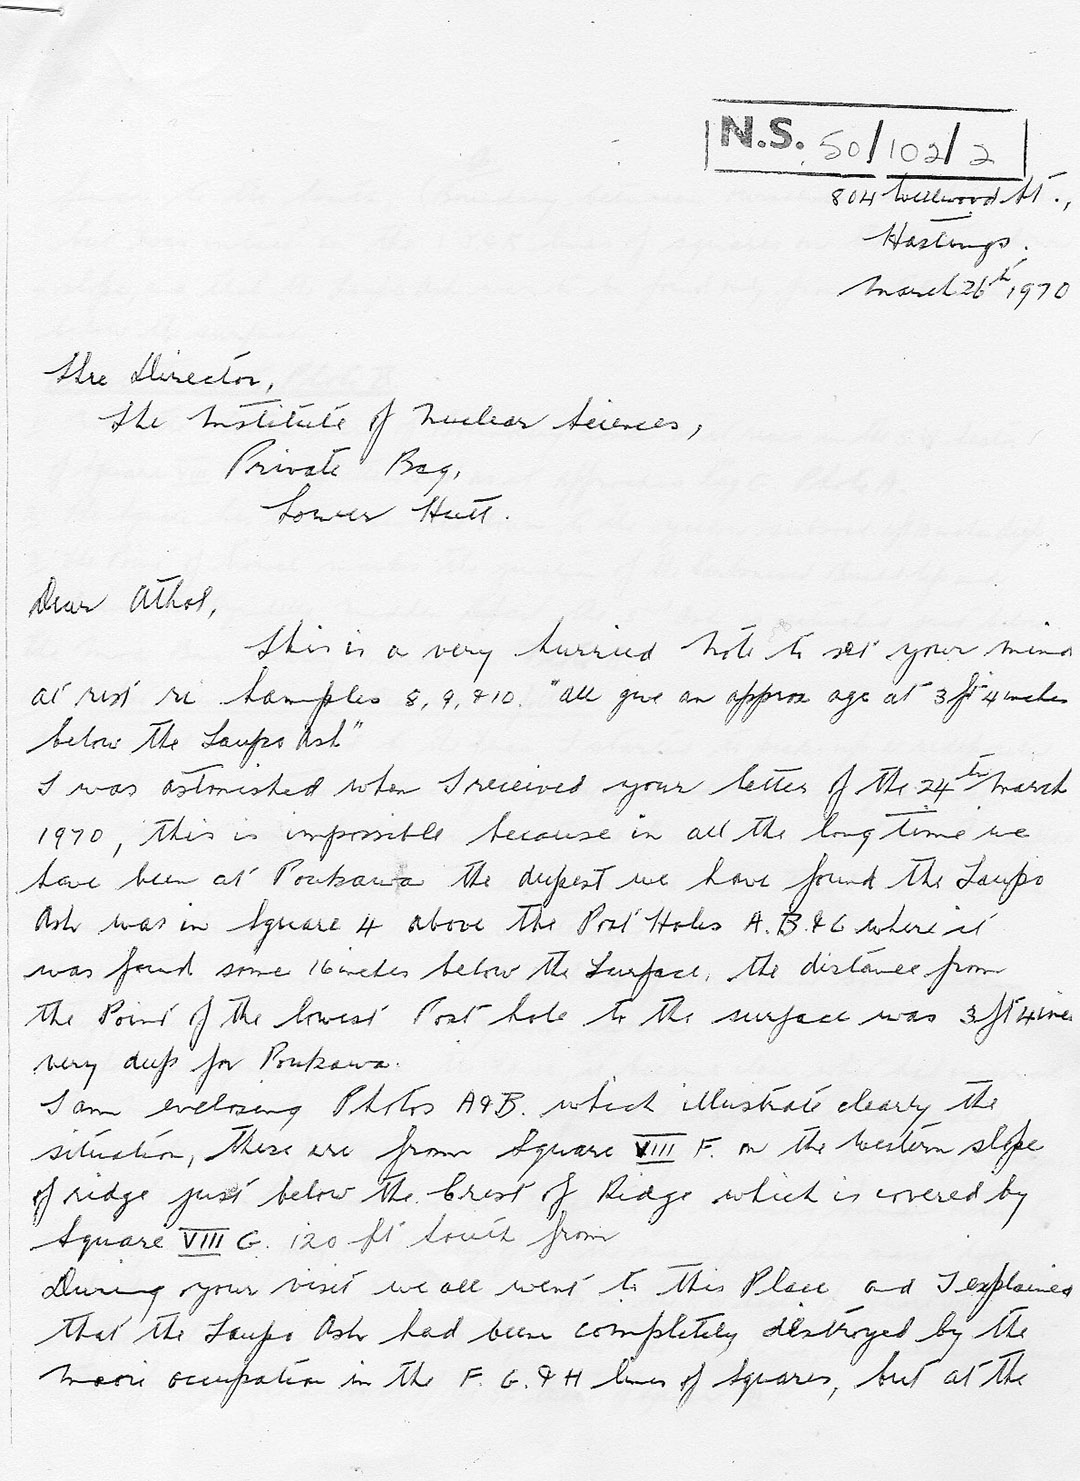 N.S. 50/102/2
804 Wellwood St.,
Hastings.
March 26th 1970
The Director,
The Institute of Nuclear Sciences,
Private Bag,
Lower Hutt.
Dear Athol,
This is a very hurried note to set your mind
at rest re Samples 8, 9, & 10. "all give an approx age at 3 ft 4 inches
below the Taupo Ash"
I was astonished when I received your letter of the 24th March
1970, this is impossible because in all the long time we
have been at Poukawa the deepest we have found the Taupo
Ash was in Square 4 above the Post Holes A. B. & C where it
was found some 16 inches below the Surface, the distance from
the Point of the lowest Post hole to the surface was 3 ft 4
very deep for Poukawa.
I am enclosing Photos A & B. which illustrate clearly the
situation, these are from Square VIII F. on the Western slope
of ridge just below the Crest of Ridge which is covered by
Square VIII G. 120 ft South from
During your visit we all went to this Place and I explained
that the Taupo Ash had been completely destroyed by the
Maori occupation in the F. G. & H lines of Squares, but at the